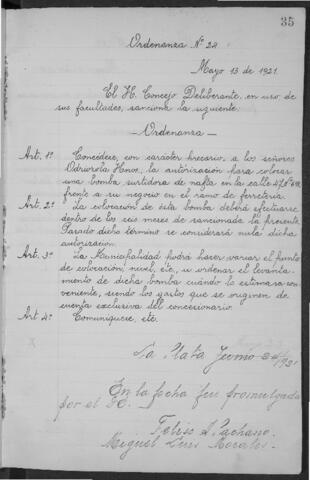 35
Ordenanza Nº 24
Mayo 13 de 1921
El H. Concejo Deliberante, en uso de
sus facultades, sanciona la siguiente:
—Ordenanza—
Art. 1º Concédese, con carácter precario, a los señores
Odriozola Hnos, la autorización para colocar
una bomba surtidora de nafta en la calle 47
frente a su negocio en el ramo de ferretería.
Art. 2º La colocación de esta bomba deberá efectuarse
dentro de los seis meses de sancionada la presente.
Pasado dicho término se considerará nula dicha
autorización.
Art. 3º La Municipalidad podrá hacer variar el punto
de colocación, nivel, etc., u ordenar el levanta
miento de dicha bomba cuando lo estimara con
veniente, siendo los gastos que se originen de
cuenta exclusiva del concesionario.
Art. 4º Comuníquese, etc.
La Plata Junio 1921
En la fecha fue promulgada
por el
Felipe A Pachano.
Miguel Luis Morales.